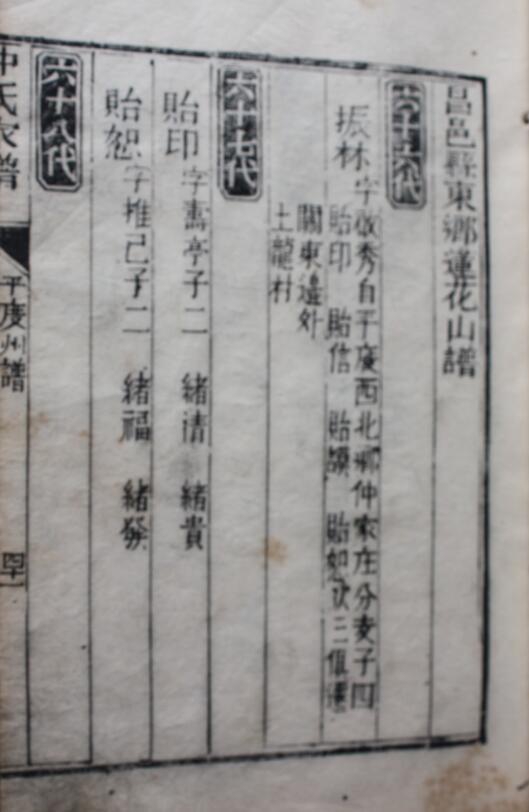 昌邑縣東鄉蓮花山譜
六十六代
振林字啟秀自平度西北鄉仲家庄分支子四
貽印 貽信 貽 貽恕次三俱遷
關東邊外
土龍村
六十七代
貽印字壽亭子二 緒清 緒貴
貽恕字推己子二 緒福 緒發
六十八代
仲氏家譜 平度州譜